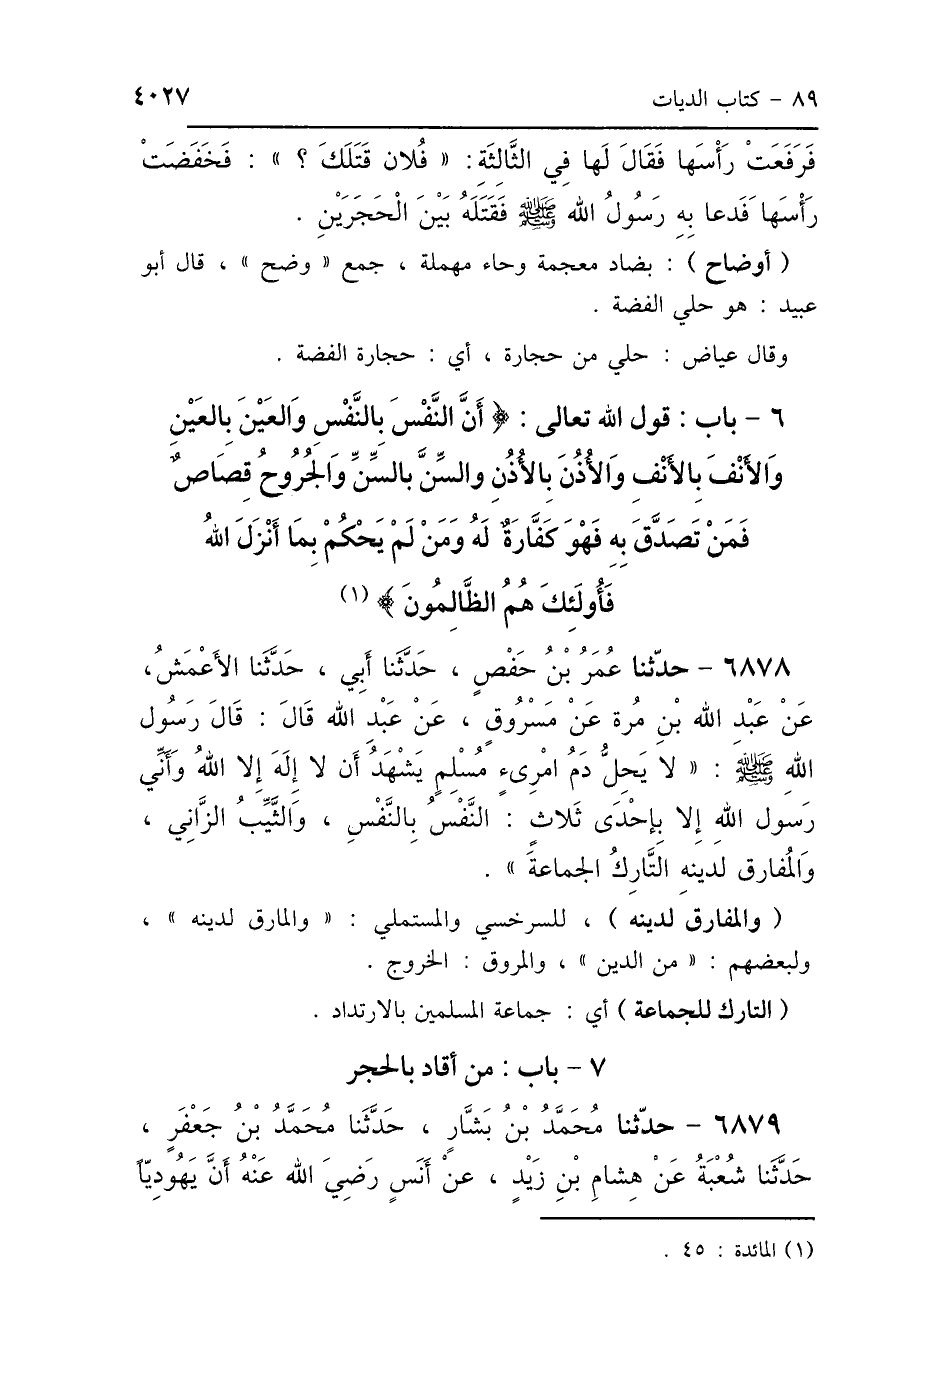 ٨٩ - كتاب الديات ٤٠٢٧
فَرَفَعَتْ رَأْسَها فَقَالَ لَها فِي الثَّالثَةِ : « فُلان قَتَلَكَ ؟ » : فَخَفَضَتْ
رَأْسَها فَدعا بِهِ رَسُولُ الله ﷺ فَقَتَلَهُ بَيْنَ الْحَجَرَيْنِ .
( أوضاح ) : بضاد معجمة وحاء مهملة ، جمع « وضح » ، قال أبو
عبيد : هو حلي الفضة .
وقال عياض : حلي من حجارة ، أي : حجارة الفضة .
٦ - باب : قول الله تعالى : ﴿ أَنَّ النَّفْسَ بِالنَّفْسِ وَالعَيْنَ بِالعَيْنِ
وَالأَنْفَ بِالأَنْفِ وَالأُذُنَ بِالأُذُنِ والسِّنَّ بالسِّنِّ وَالجُرُوحُ قِصَاصٌ
فَمَنْ تَصَدَّقَ بِهِ فَهْوَ كَفَّارَةٌ لَهُ وَمَنْ لَمْ يَحْكُمْ بِمَا أَنْزَلَ اللهُ
فَأُولَئِكَ هُمُ الظَّالِمُونَ ﴾ (١)
٦٨٧٨ - حدّثنا عُمَرُ بْنُ حَفْصٍ ، حَدَّثَنا أَبِي ، حَدَّثَنا الأَعْمَشُ ،
عَنْ عَبْدِ الله بْنِ مُرة عَنْ مَسْرُوقٍ ، عَنْ عَبْدِ الله قَالَ : قَالَ رَسُول
اللهِ ﷺ : « لا يَحِلُّ دَمُ امْرِىءٍ مُسْلِمٍ يَشْهَدُ أَن لا إِلَهَ إِلا اللهُ وَأَنِّي
رَسول اللهِ إِلا بِإِحْدَى ثَلاثٍ : النَّفْسُ بِالنَّفْسِ ، وَالثَّيِّبُ الزَّانِي ،
وَالْمُفارق لدينهِ التَّارِكُ الجماعةَ » .
( والمفارق لدينه ) ، للسرخسي والمستملي : « والمارق لدينه » ،
ولبعضهم : « من الدين » ، والمروق : الخروج .
( التارك للجماعة ) أي : جماعة المسلمين بالارتداد .
٧ - باب : من أقاد بالحجر
٦٨٧٩ - حدّثنا مُحَمَّدُ بْنُ بَشَّارٍ ، حَدَّثَنا مُحَمَّدُ بْنُ جَعْفَرٍ ،
حَدَّثَنا شُعْبَةُ عَنْ هِشامِ بْنِ زَيْدٍ ، عنْ أَنَسٍ رَضِيَ الله عَنْهُ أَنَّ يَهُودِيّاً
(١) المائدة : ٤٥ .